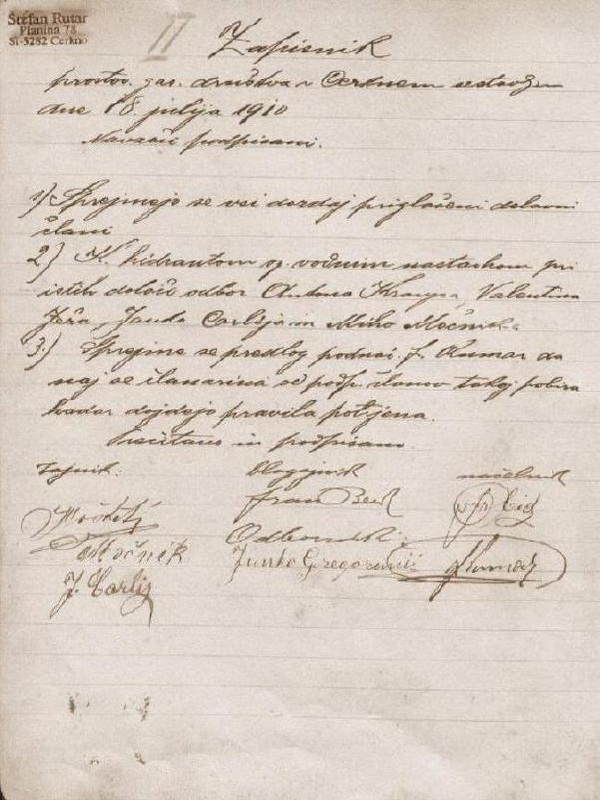 Štefan Rutar
Planina 78
SI-5282 Cerkno
II
Zapisnik
prostov. gas. društva v Cerknem sestavljen
dne 18 julija 1910
Navzoči podpisani.
1) Sprejmejo se vsi dozdaj priglašeni delavni
člani
2) K hidrantom oz. vodnim nastavkom pri
istih določi odbor Antona Kranjca, Valentina
Ježa, Janka Carlija in Mirko Močnika
3.) Sprejme se predlog podnač. J. Kumar da
naj se članarina od podp. članov takoj pobira
kadar dojdejo pravila potrjena.
Prečitano in podpisano.
Tajnik: blagajnik načelnik
Fran Bevk
Odborniki:
Močnik Janko Gregorčič Kumar
J. Carlij